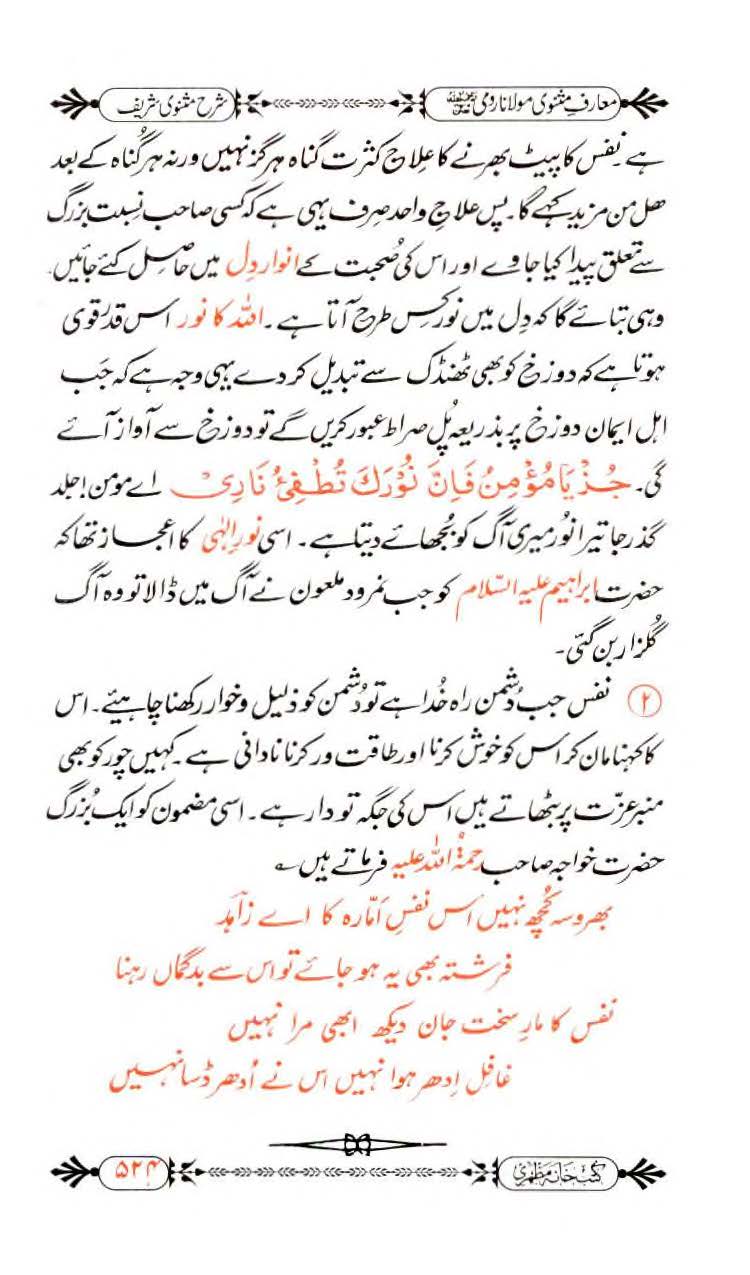 معارفِ مثنوی مولانا رومی رحمۃ اللہ علیہ
شرح مثنوی شریف
ہے۔ نفس کا پیٹ بھرنے کا علاج کثرت گناہ ہرگز نہیں ورنہ ہر گناہ کے بعد
ھل من مزید کہے گا۔ پس علاجِ واحد صِرف یہی ہے کہ کسی صاحب نِسبت بزرگ
سے تعلق پیدا کیا جاوے اور اس کی صُحبت کے انوار دِل میں حاصل کئے جائیں۔
وہی بتائے گا کہ دِل میں نور کِس طرح آتا ہے۔ اللہ کا نور اس قدر قوی
ہوتا ہے کہ دوزخ کو بھی ٹھنڈک سے تبدیل کر دے یہی وجہ ہے کہ جَب
اہل ایمان دوزخ پر بذریعہ پُل صراط عبور کریں گے تو دوزخ سے آواز آئے
گی۔ جُزْ يَا مُؤْمِنُ فَاِنَّ نُوْرَكَ تُطْفِئُ نَارِىْ اے مومن! جلد
گذر جا تیرا نُور میری آگ کو بُجھائے دیتا ہے۔ اسی نورِ الٰہی کا اعجاز تھا کہ
حضرت ابراہیم علیہ السّلام کو جب نمرود ملعون نے آگ میں ڈالا تو وہ آگ
گُلزار بن گئی۔
۲ نفس جب دُشمن راہ خُدا ہے تو دُشمن کو ذلیل و خوار رکھنا چاہیئے۔ اس
کا کہنا مان کر اس کو خوش کرنا اور طاقت ور کرنا نادانی ہے۔ کہیں چور کو بھی
منبر عزّت پر بٹھاتے ہیں اس کی جگہ تو دار ہے۔ اسی مضمون کو ایک بُزرگ
حضرت خواجہ صاحب رحمۃ اللہ علیہ فرماتے ہیں ؎
بھروسہ کُچھ نہیں اس نفسِ اَمّارہ کا اے زاہد
فرشتہ بھی یہ ہو جائے تو اس سے بدگماں رہنا
نفس کا مارِ سخت جان دیکھ ابھی مرا نہیں
غافل اِدھر ہوا نہیں اس نے اُدھر ڈسا نہیں
کتب خانہ مظہری
۵۲۴